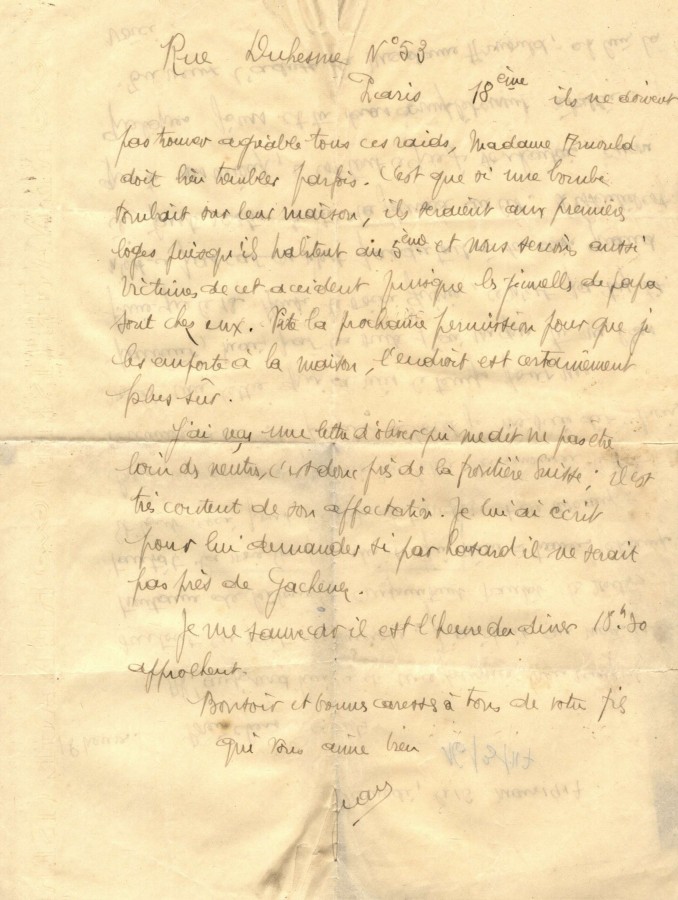 Rue Duhesme N° 53
Paris 18ème ils ne doivent
pas trouver agréable tous ces raids, Madame Arnould
doit bien trembler parfois. C'est que si une bombe
tombait sur leur maison, ils seraient aux premières
loges puisqu'il habitent au 5ème et nous serions aussi
victimes de cet accident puisque les jumelles de papa
sont chez eux. Vite la prochaine permission pour que je
les emporte à la maison, l'endroit est certainement
plus sûr.
J'ai reçu une lettre d'olivier qui me dit ne pas être
loin des neutres, c'est donc près de la frontière Suisse; il est
très content de son affectation. Je lui ai écrit
pour lui demander si par hasard il ne serait
pas près de
Je me sauve car il est l'heure du diner 18h30
approchent.
Bonsoir et bonnes caresses à tous de votre fils
qui vous aime bien